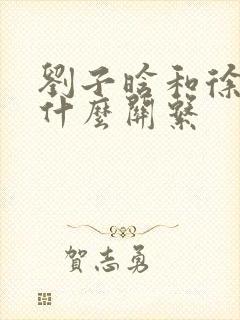 劉子晗和徐
什麼關繫
賀志勇